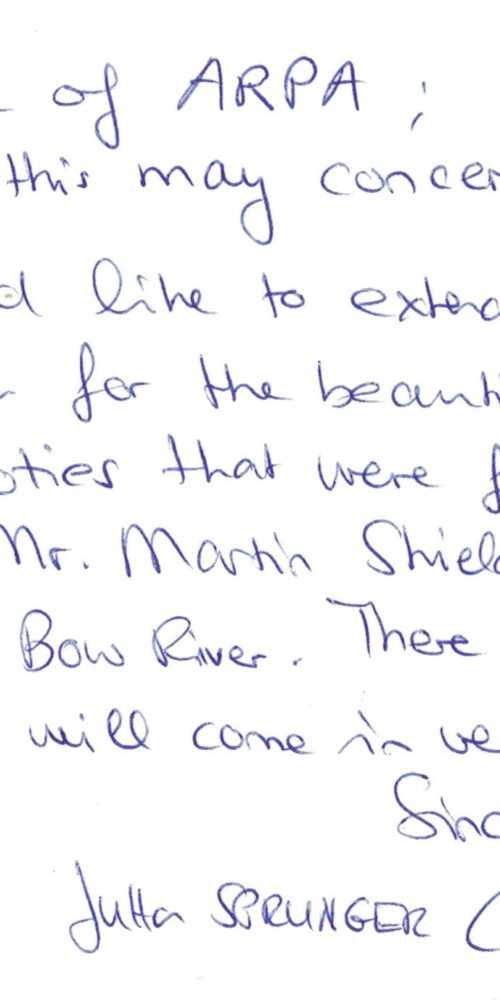 of ARPA ;
this may concer
d like to extend
for the beauti
oties that were f
Mr. Martin Shield
Bow River. There
will come in ve
Sinc
Jutta SPRUNGER (